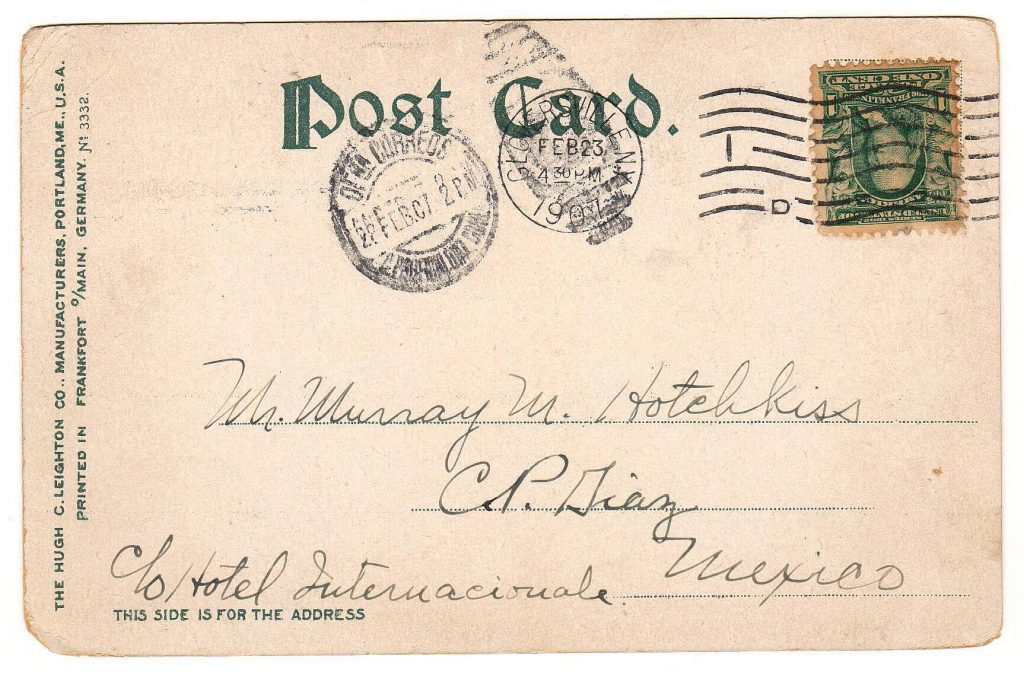 Post Card.
GLOVERSVILLE, N.Y.
FEB 23
4 30 PM
1907
D
CORREOS
FEB 07 2 PM
ONE CENT
FRANKLIN
Mr. Murray M. Hotchkiss
C.P. Diaz
Mexico
c/o Hotel Internacionale
THIS SIDE IS FOR THE ADDRESS
THE HUGH C. LEIGHTON CO., MANUFACTURERS, PORTLAND, ME., U.S.A.
PRINTED IN FRANKFORT o/MAIN, GERMANY. No 3332.